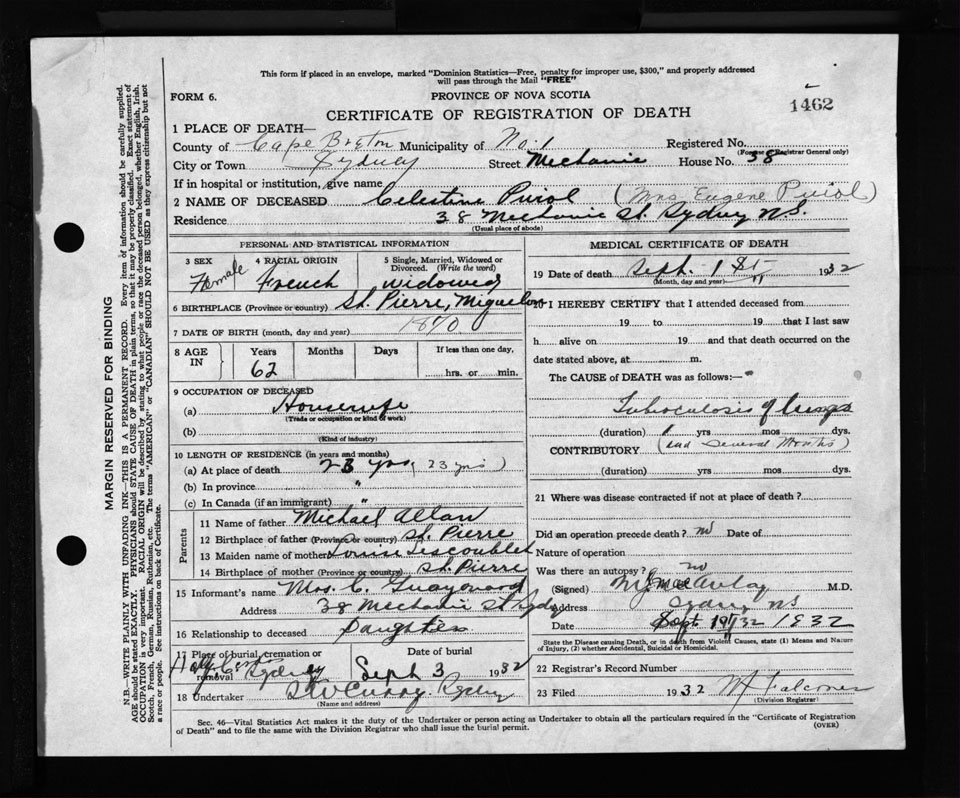 This form if placed in an envelope, marked "Dominion Statistics—Free, penalty for improper use, $300," and properly addressed
will pass through the Mail "FREE"
FORM 6.
PROVINCE OF NOVA SCOTIA
1462
CERTIFICATE OF REGISTRATION OF DEATH
1 PLACE OF DEATH—
County of Cape Breton Municipality of No. 1 Registered No.
(For use of Registrar General only)
City or Town Sydney Street Mechanic House No. 38
If in hospital or institution, give name
2 NAME OF DECEASED Celestine Puriol (Mrs Eugene Puriol)
Residence 38 Mechanic St. Sydney NS.
(Usual place of abode)
PERSONAL AND STATISTICAL INFORMATION
3 SEX Female
4 RACIAL ORIGIN French
5 Single, Married, Widowed or Divorced. (Write the word) widowed
6 BIRTHPLACE (Province or country) St. Pierre, Miquelon
7 DATE OF BIRTH (month, day and year) 1870
8 AGE IN Years 62 Months Days If less than one day, hrs. or min.
9 OCCUPATION OF DECEASED
(a) Housewife
(Trade or occupation or kind of work)
(b)
(Kind of industry)
10 LENGTH OF RESIDENCE (in years and months)
(a) At place of death 23 yrs, 23 yrs)
(b) In province "
(c) In Canada (if an immigrant) "
Parents
11 Name of father Michael Allan
12 Birthplace of father (Province or country) St. Pierre
13 Maiden name of mother Louise
14 Birthplace of mother (Province or country) St. Pierre
15 Informant's name Mrs. C.
Address 38 Mechanic St Sydney
16 Relationship to deceased Daughter
17 Place of burial, cremation or removal Holy Cross Sydney
Date of burial Sept 3 1932
18 Undertaker Curry Sydney
(Name and address)
MEDICAL CERTIFICATE OF DEATH
19 Date of death Sept. 1st 1932
(Month, day and year)
20 I HEREBY CERTIFY that I attended deceased from
19 to 19 that I last saw
h alive on 19 and that death occurred on the
date stated above, at m.
The CAUSE of DEATH was as follows:—
Tuberculosis of lungs
(duration) yrs mos dys.
CONTRIBUTORY (had several months)
(duration) yrs mos dys.
21 Where was disease contracted if not at place of death?
Did an operation precede death? no Date of
Nature of operation
Was there an autopsy? no
(Signed) M.D.
Address Sydney NS
Date Sept 1932
State the Disease causing Death, or in death from Violent Causes, state (1) Means and Nature
of Injury, (2) whether Accidental, Suicidal or Homicidal.
22 Registrar's Record Number
23 Filed 1932 Falconer
(Division Registrar)
Sec. 46—Vital Statistics Act makes it the duty of the Undertaker or person acting as Undertaker to obtain all the particulars required in the "Certificate of Registration
of Death" and to file the same with the Division Registrar who shall issue the burial permit.
(OVER)
MARGIN RESERVED FOR BINDING
N.B.—WRITE PLAINLY WITH UNFADING INK—THIS IS A PERMANENT RECORD. Every item of information should be carefully supplied.
AGE should be stated EXACTLY. PHYSICIANS should STATE CAUSE OF DEATH in plain terms, so that it may be properly classified. Exact statement of
OCCUPATION is very important. RACIAL ORIGIN will be described by stating to what people or race the deceased person belonged, whether English, Irish,
Scotch, French, German, Russian, Ruthenian, etc. The terms "AMERICAN" or "CANADIAN" SHOULD NOT BE USED as they express citizenship but not
a race or people. See instructions on back of Certificate.